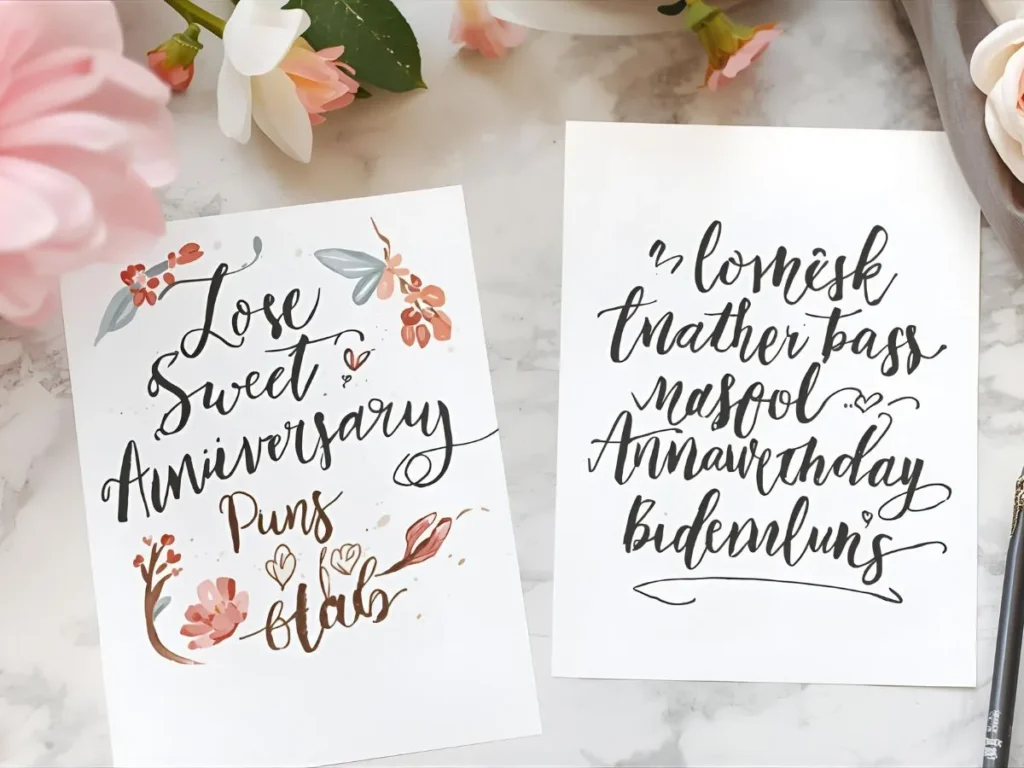 Lose
Sweet
Anniversary
Puns
lornisk
tnather bass
nasfol
Annawerthday
Bidemluns